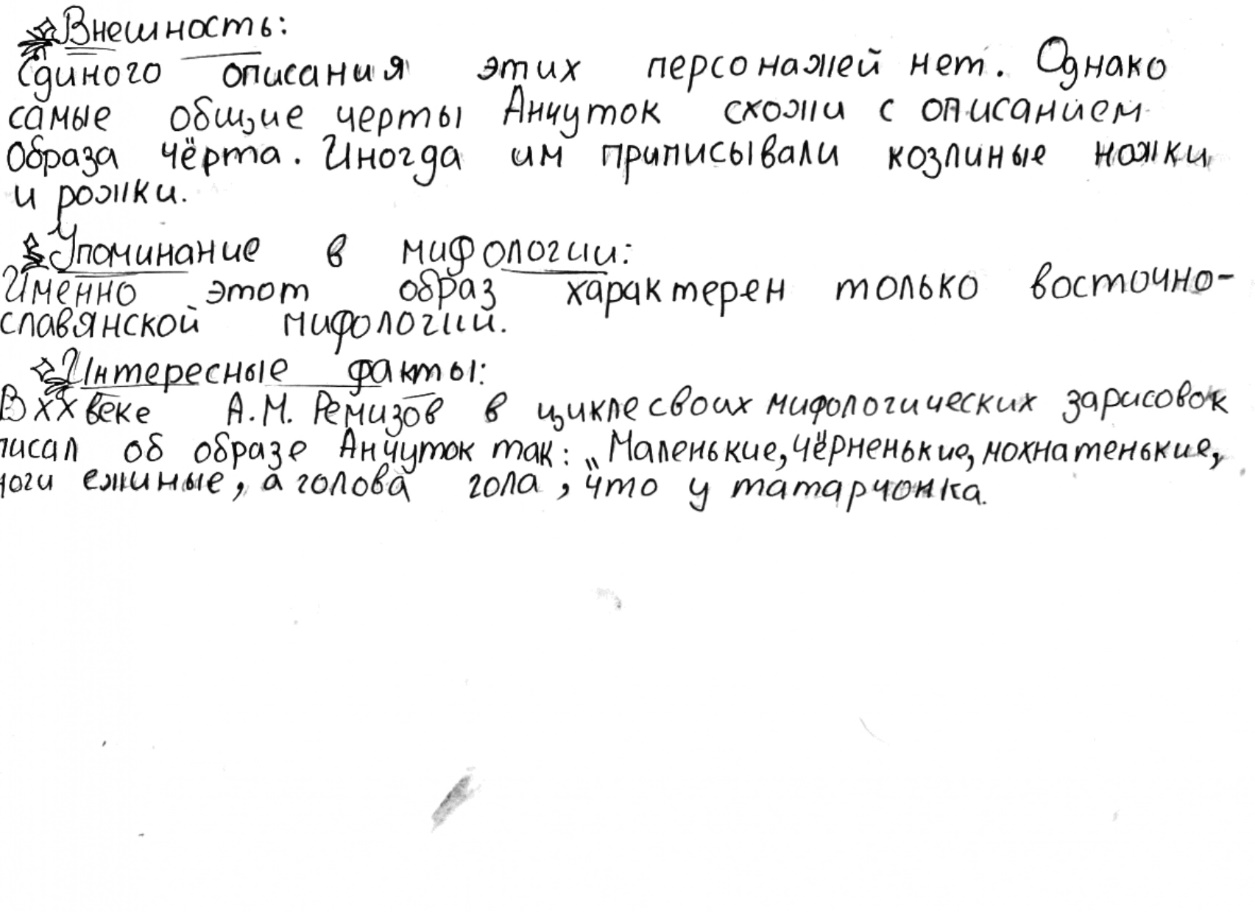 Внешность:
Единого описания этих персонажей нет. Однако
самые общие черты Анчуток схожи с описанием
образа чёрта. Иногда им приписывали козлиные ножки
и рожки.
Упоминание в мифологии:
Именно этот образ характерен только восточно-
славянской мифологии.
Интересные факты:
В XX веке А.М. Ремизов в цикле своих мифологических зарисовок
писал об образе Анчуток так: „Маленькие, чёрненькие, мохнатенькие,
ноги ежиные, а голова гола, что у татарчонка.